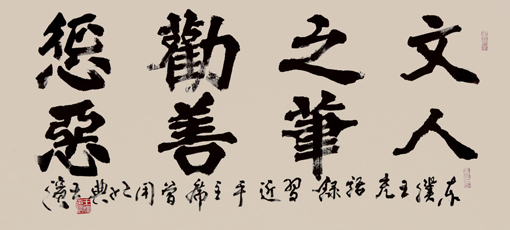 文人
之筆
勸善
惩惡
東漢王充語錄習近平主席嘗用之典